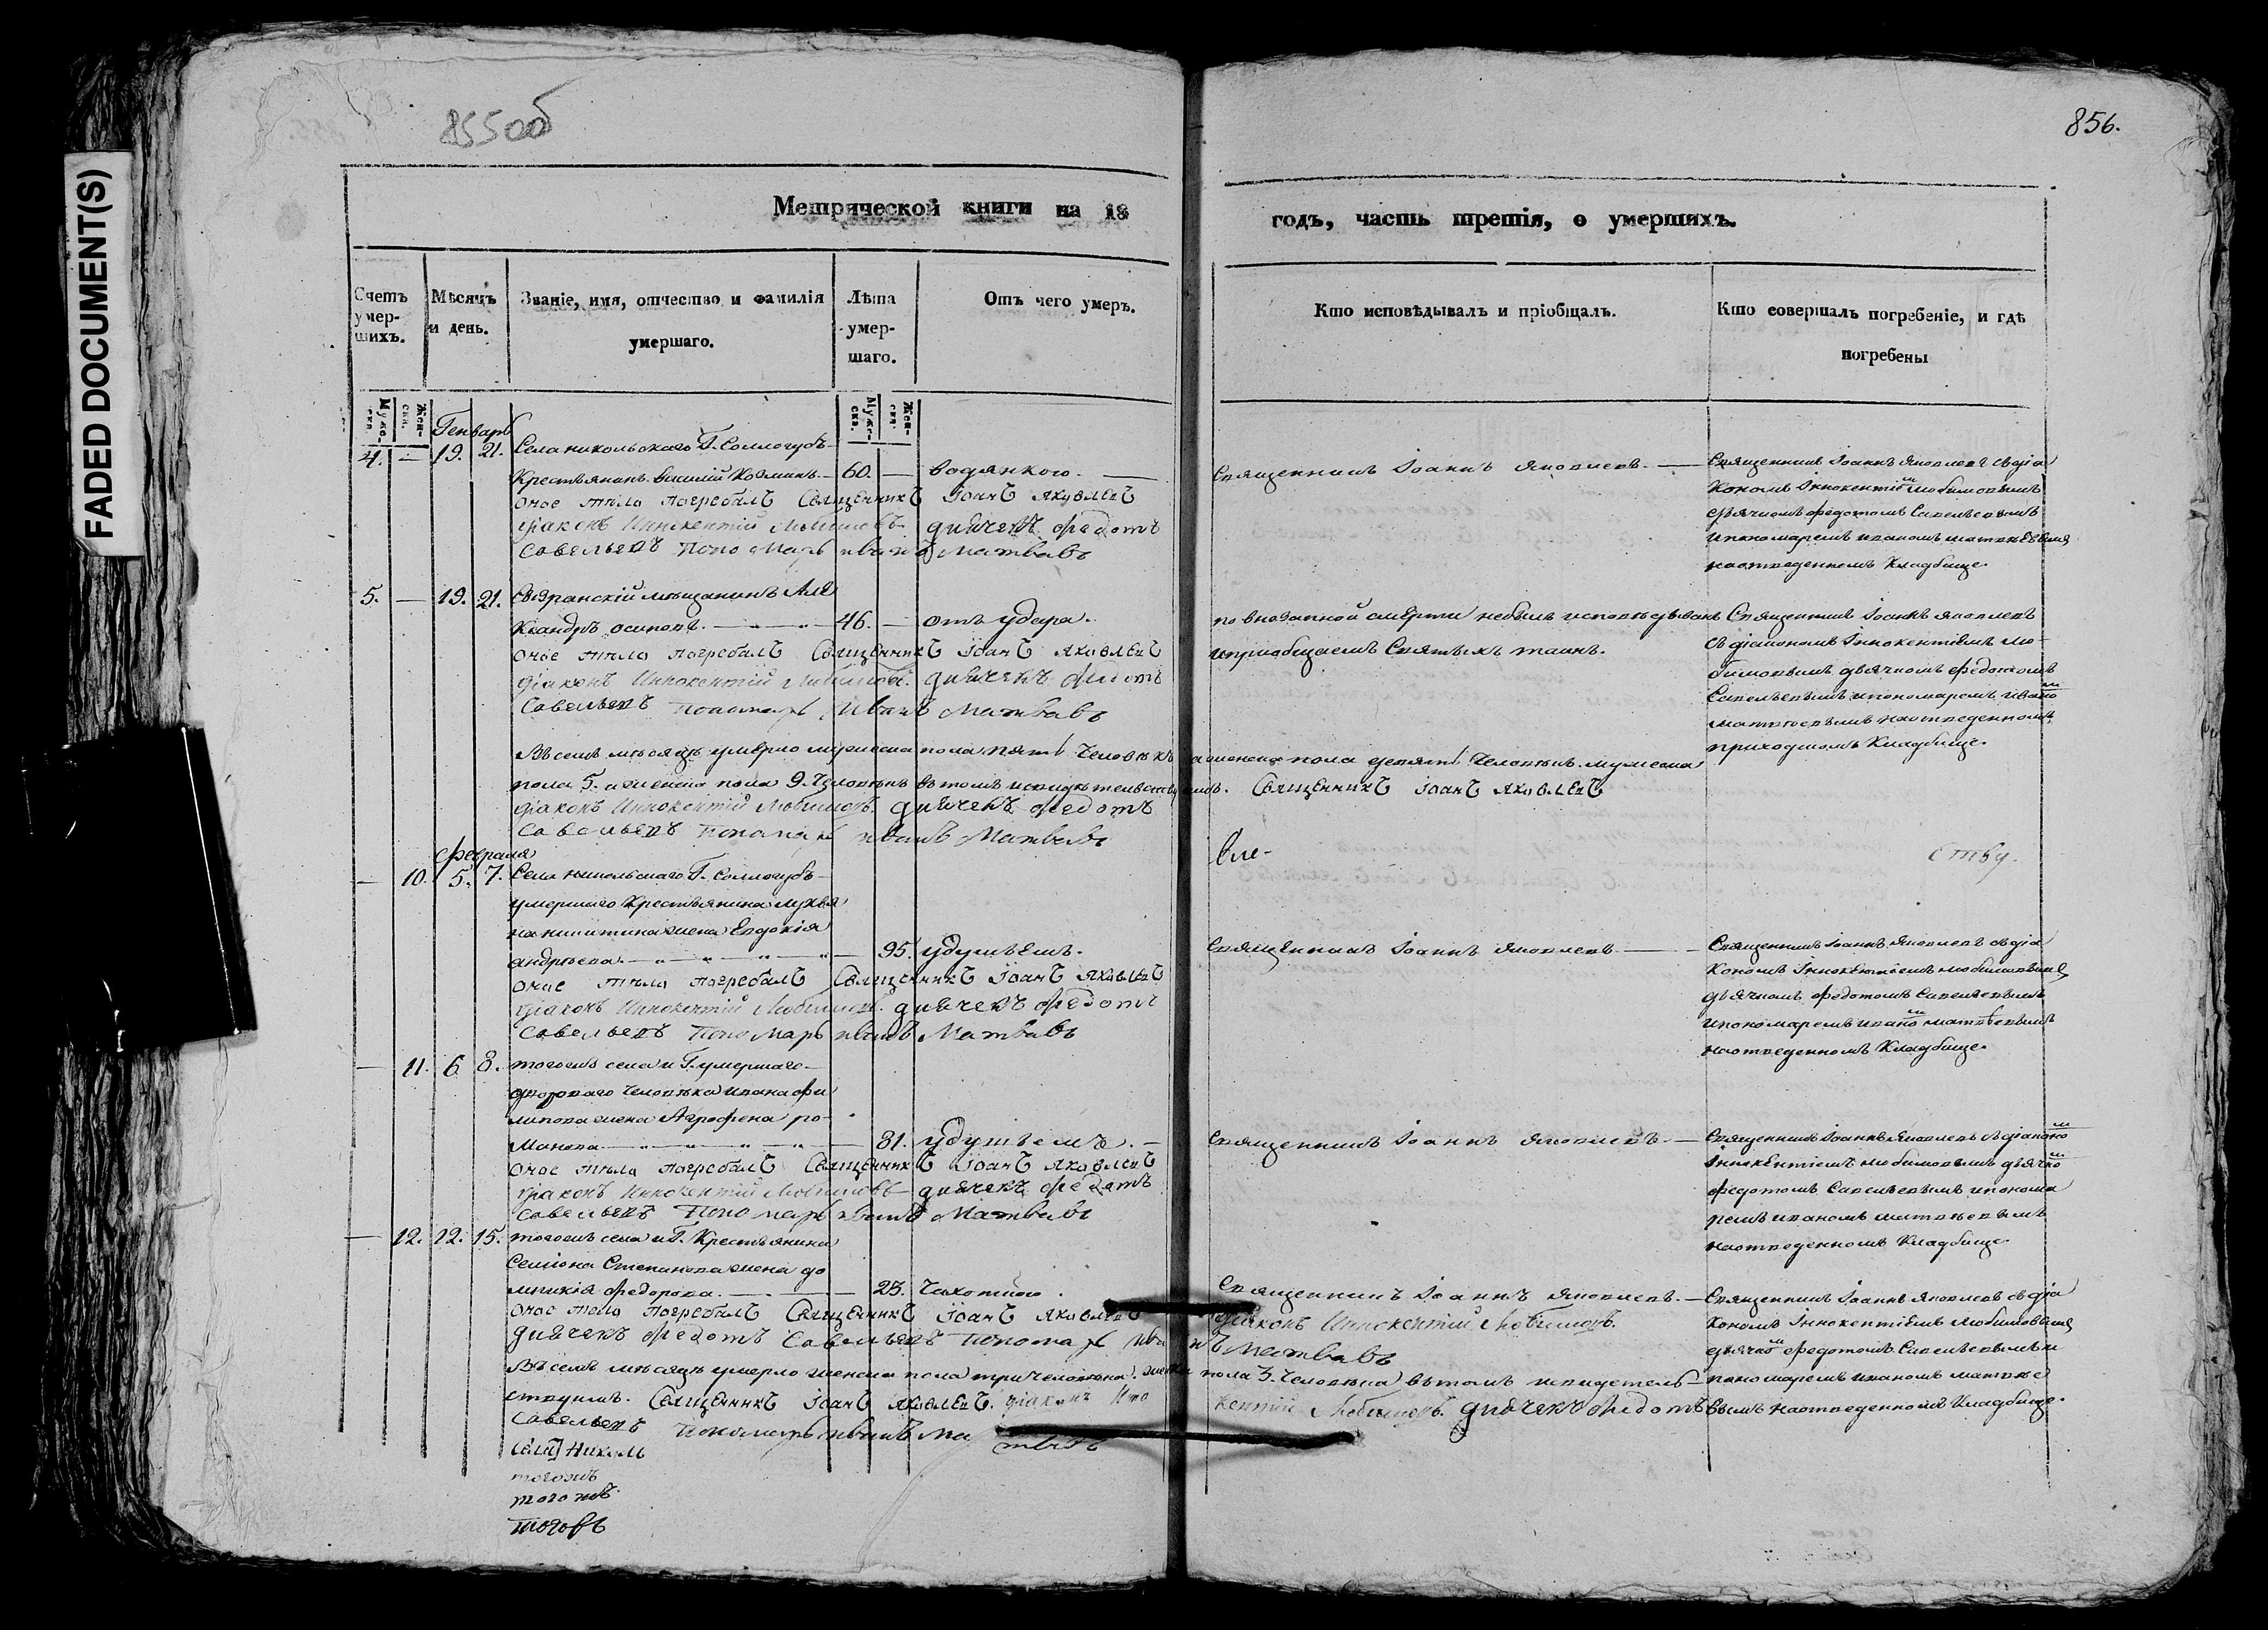 FADED DOCUMENT(S)
855об
856.
Метрической книги на 18
годъ, часть третія, о умершихъ.
Счетъ умер-шихъ.
Мѣсяцъ и день.
Званіе, имя, отчество и фамилія умершаго.
Лѣта умер-шаго.
Отъ чего умеръ.
Кто исповѣдывалъ и пріобщалъ.
Кто совершалъ погребеніе, и гдѣ погребены
Муже-ска.
Жен-ска.
Муже-ска.
Жен-ска.
Генварь
4. — 19. 21. Села никольскаго Г. Соллогубъ
Крестьянинъ василій Козминъ — 60. — водянкою.
Священникъ Іоаннъ Яковлевъ.
Священникъ Іоаннъ Яковлевъ съ діа
кономъ Іннокентіемъ любимовымъ
дьячкомъ федотомъ Савельевымъ
и пономаремъ иваномъ матвѣевымъ
на отведенномъ Кладбище.
оное тѣло погребалъ Священникъ Іоанъ Яковлевъ
діаконъ Иннокентій Любимовъ дьячекъ Федотъ
Савельевъ Пономарь иванъ Матвѣвъ
5. — 19. 21. Сызранскій мѣщанинъ Але
ксандръ осиповъ. — 46. — отъ удара.
по внезапной смерти небылъ исповѣдыванъ
и приобщаемъ Святыхъ таинъ.
Священникъ Іоаннъ Яковлевъ
съ діакономъ Іннокентіемъ лю-
бимовымъ дьячкомъ федотомъ
Савельевымъ и пономаремъ ивано
матвѣевымъ на отведенномъ
приходскомъ Кладбище.
оное тѣло погребалъ Священникъ Іоанъ Яковлевъ
діаконъ Иннокентій Любимовъ. дьячекъ Федотъ
Савельевъ пономарь Иванъ Матвѣвъ
Въ семъ мѣсяцѣ умерло мужеска пола пять Человѣкъ а женска пола девять Человѣкъ. мужеска
пола 5. и женска пола 9. Человѣкъ въ томъ и свидѣтельствуемъ. Священникъ Іоанъ Яковлевъ
діаконъ Иннокентій Любимовъ. дьячекъ Федотъ
Савельевъ Пономарь иванъ Матвѣвъ
Сле-
ству.
февраля
— 10. 5. 7. Села никольскаго Г. Соллогубъ
умершаго Крестьянина лукья
на никитина жена Евдокія
андрѣева. — 95. удушьемъ.
Священникъ Іоаннъ Яковлевъ
Священникъ Іоаннъ Яковлевъ съ діа
кономъ Іннокентіемъ любимовымъ
дьячкомъ федотомъ Савельевымъ
и пономаремъ ивано матвѣевымъ
на отведенномъ Кладбище.
оное тѣло погребалъ Священникъ Іоанъ Яковлевъ
діаконъ Иннокентій Любимовъ. дьячекъ Федотъ
Савельевъ Пономарь иванъ Матвѣвъ
— 11. 6. 8. тогожъ села и Г. умершаго
двороваго Человѣка ивана фи
липова жена Агрофена ро-
манова — 81. удушьемъ.
Священникъ Іоаннъ Яковлевъ
Священникъ Іоаннъ Яковлевъ съ діаконо
Іннокентіемъ любимовымъ дьячко
федотомъ Савельевымъ и понома
ремъ иваномъ матвѣевымъ
на отведенномъ Кладбище.
оное тѣло погребалъ Священникъ Іоанъ Яковлевъ
діаконъ Иннокентій Любимовъ дьячекъ Федотъ
Савельевъ Пономарь иванъ Матвѣвъ
— 12. 12. 15. тогожъ села и Г. Крестьянина
Семіона Степанова жена до
мникія федорова. — 25. Чахоткою.
Священникъ Іоаннъ Яковлевъ.
Священникъ Іоаннъ Яковлевъ съ діа
кономъ Іннокентіемъ Любимовымъ
дьячко федотомъ Савельевымъ и
пономаремъ иваномъ матвѣе
вымъ на отведенномъ Кладбище.
оное тело погребалъ Священникъ Іоанъ Яковлевъ діаконъ Иннокентій Любимовъ.
дьячекъ Федотъ Савельевъ пономарь иванъ Матвѣвъ
Въ семъ мѣсяцѣ умерло женска пола три человѣка. женска пола 3. Человѣка въ томъ и свидетель-
ствуемъ. Священникъ Іоанъ Яковлевъ. діаконъ Иннокентій Любимовъ. дьячекъ Федотъ
Савельевъ Пономарь иванъ Матвѣвъ
Села Николь
тогожъ
тогожъ